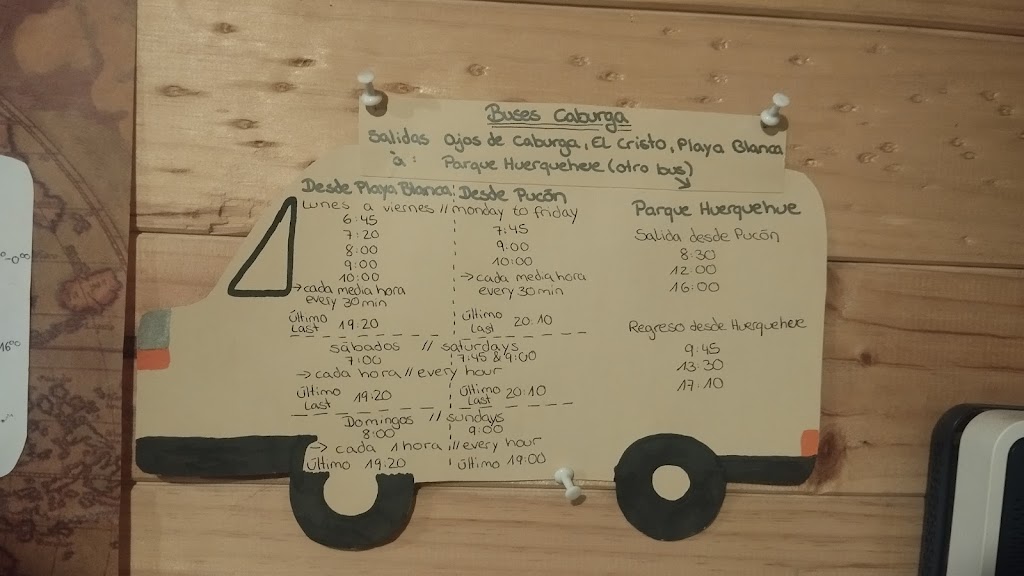 Buses Caburga
Salidas Ojos de Caburga, El Cristo, Playa Blanca
a: Parque Huerquehue (otro bus)
Desde Playa Blanca Desde Pucón
Lunes a viernes // monday to friday
6:45 7:45
7:20 9:00
8:00 10:00
9:00 → cada media hora
10:00 every 30 min
→ cada media hora
every 30 min
Último
Last 19:20
Último
Last 20:10
sábados // saturdays
7:00 7:45 & 9:00
→ cada hora // every hour
Último
Last 19:20
Último
Last 20:10
Domingos // sundays
8:00 9:00
→ cada 1 hora // every hour
Último 19:20 Último 19:00
Parque Huerquehue
Salida desde Pucón
8:30
12:00
16:00
Regreso desde Huerquehue
9:45
13:30
17:10